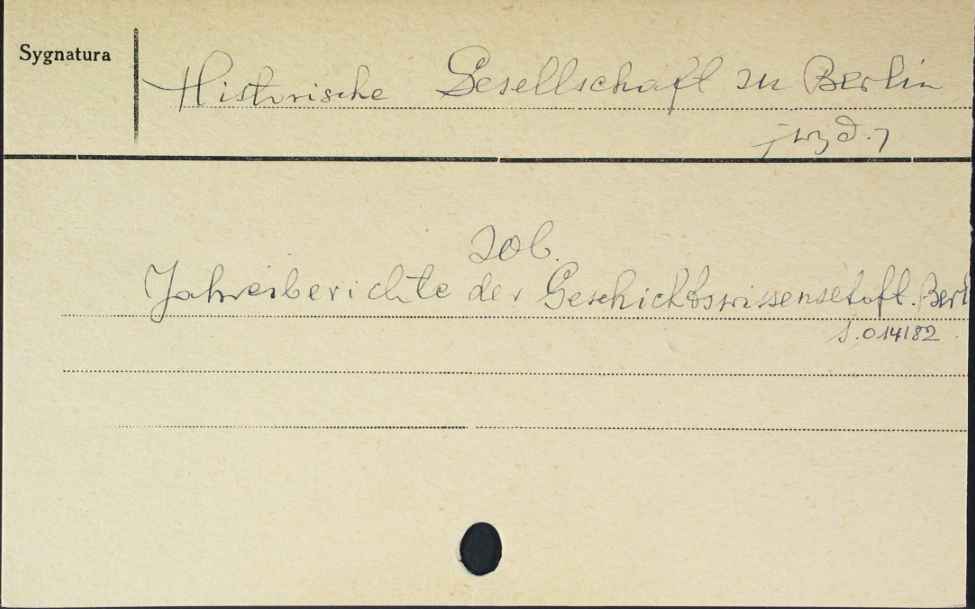 Sygnatura
Historische Gesellschaft zu Berlin
[wyd.]
zob.
Jahresberichte der Geschichtswissenschaft. Berl
S.014182